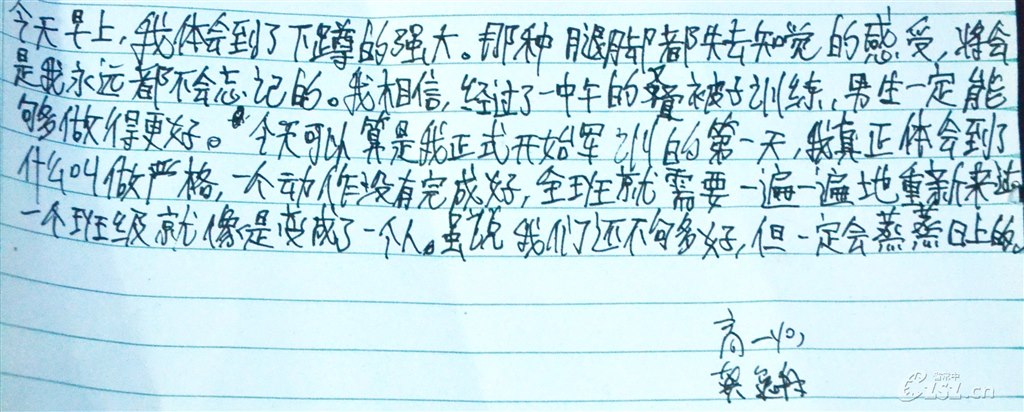 今天早上,我体会到了下蹲的强大。那种腿脚都失去知觉的感受,将会
是我永远都不会忘记的。我相信,经过了一中午的叠被子训练,男生一定能
够多做得更好。今天可以算是我正式开始军训的第一天,我真正体会到了
什么叫做严格,一个动作没有完成好,全班就需要一遍一遍地重新来过
一个班级就像是变成了一个人。虽说我们还不够多好,但一定会蒸蒸日上的。
高一(4)